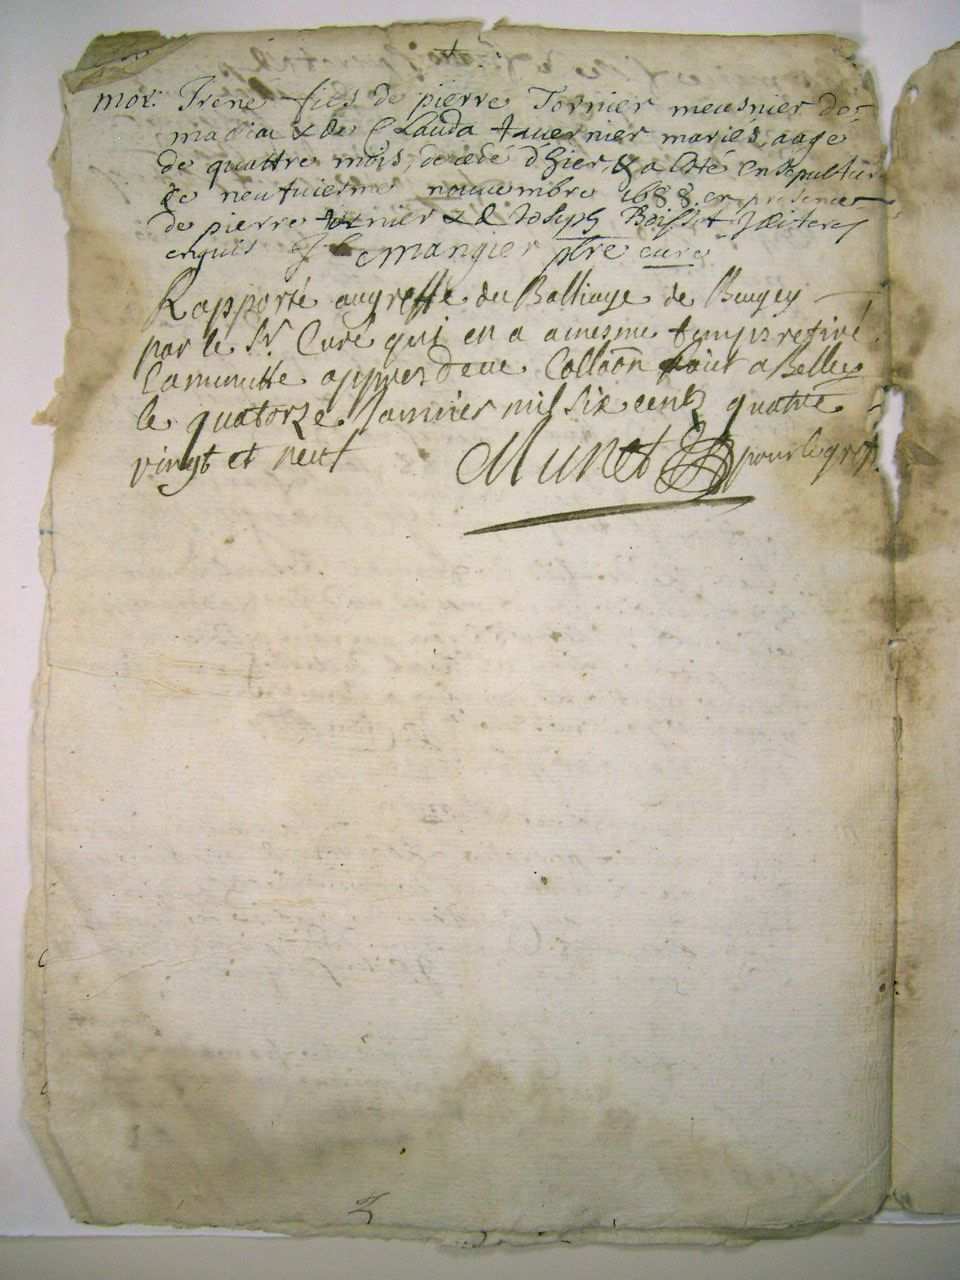 mor. Irene fils de pierre Tornier meusnier de
& de Clauda tavernier mariés, aagé
de quattre mois, decedé d'hier & a esté ensepulturé
ce neufuieme nouuembre 1688. en presence
de pierre tornier & de Joseph
enquis Mangier ptre curé
Rapporté au greffe du Balliage de Bugey
par le Sr. Curé qui en a a mesme temps retiré
la minutte appres deue Collaōn fait a Belley
le quatorze Janvier mil six cents quatre
vingt et neuf Munet pour le gref.